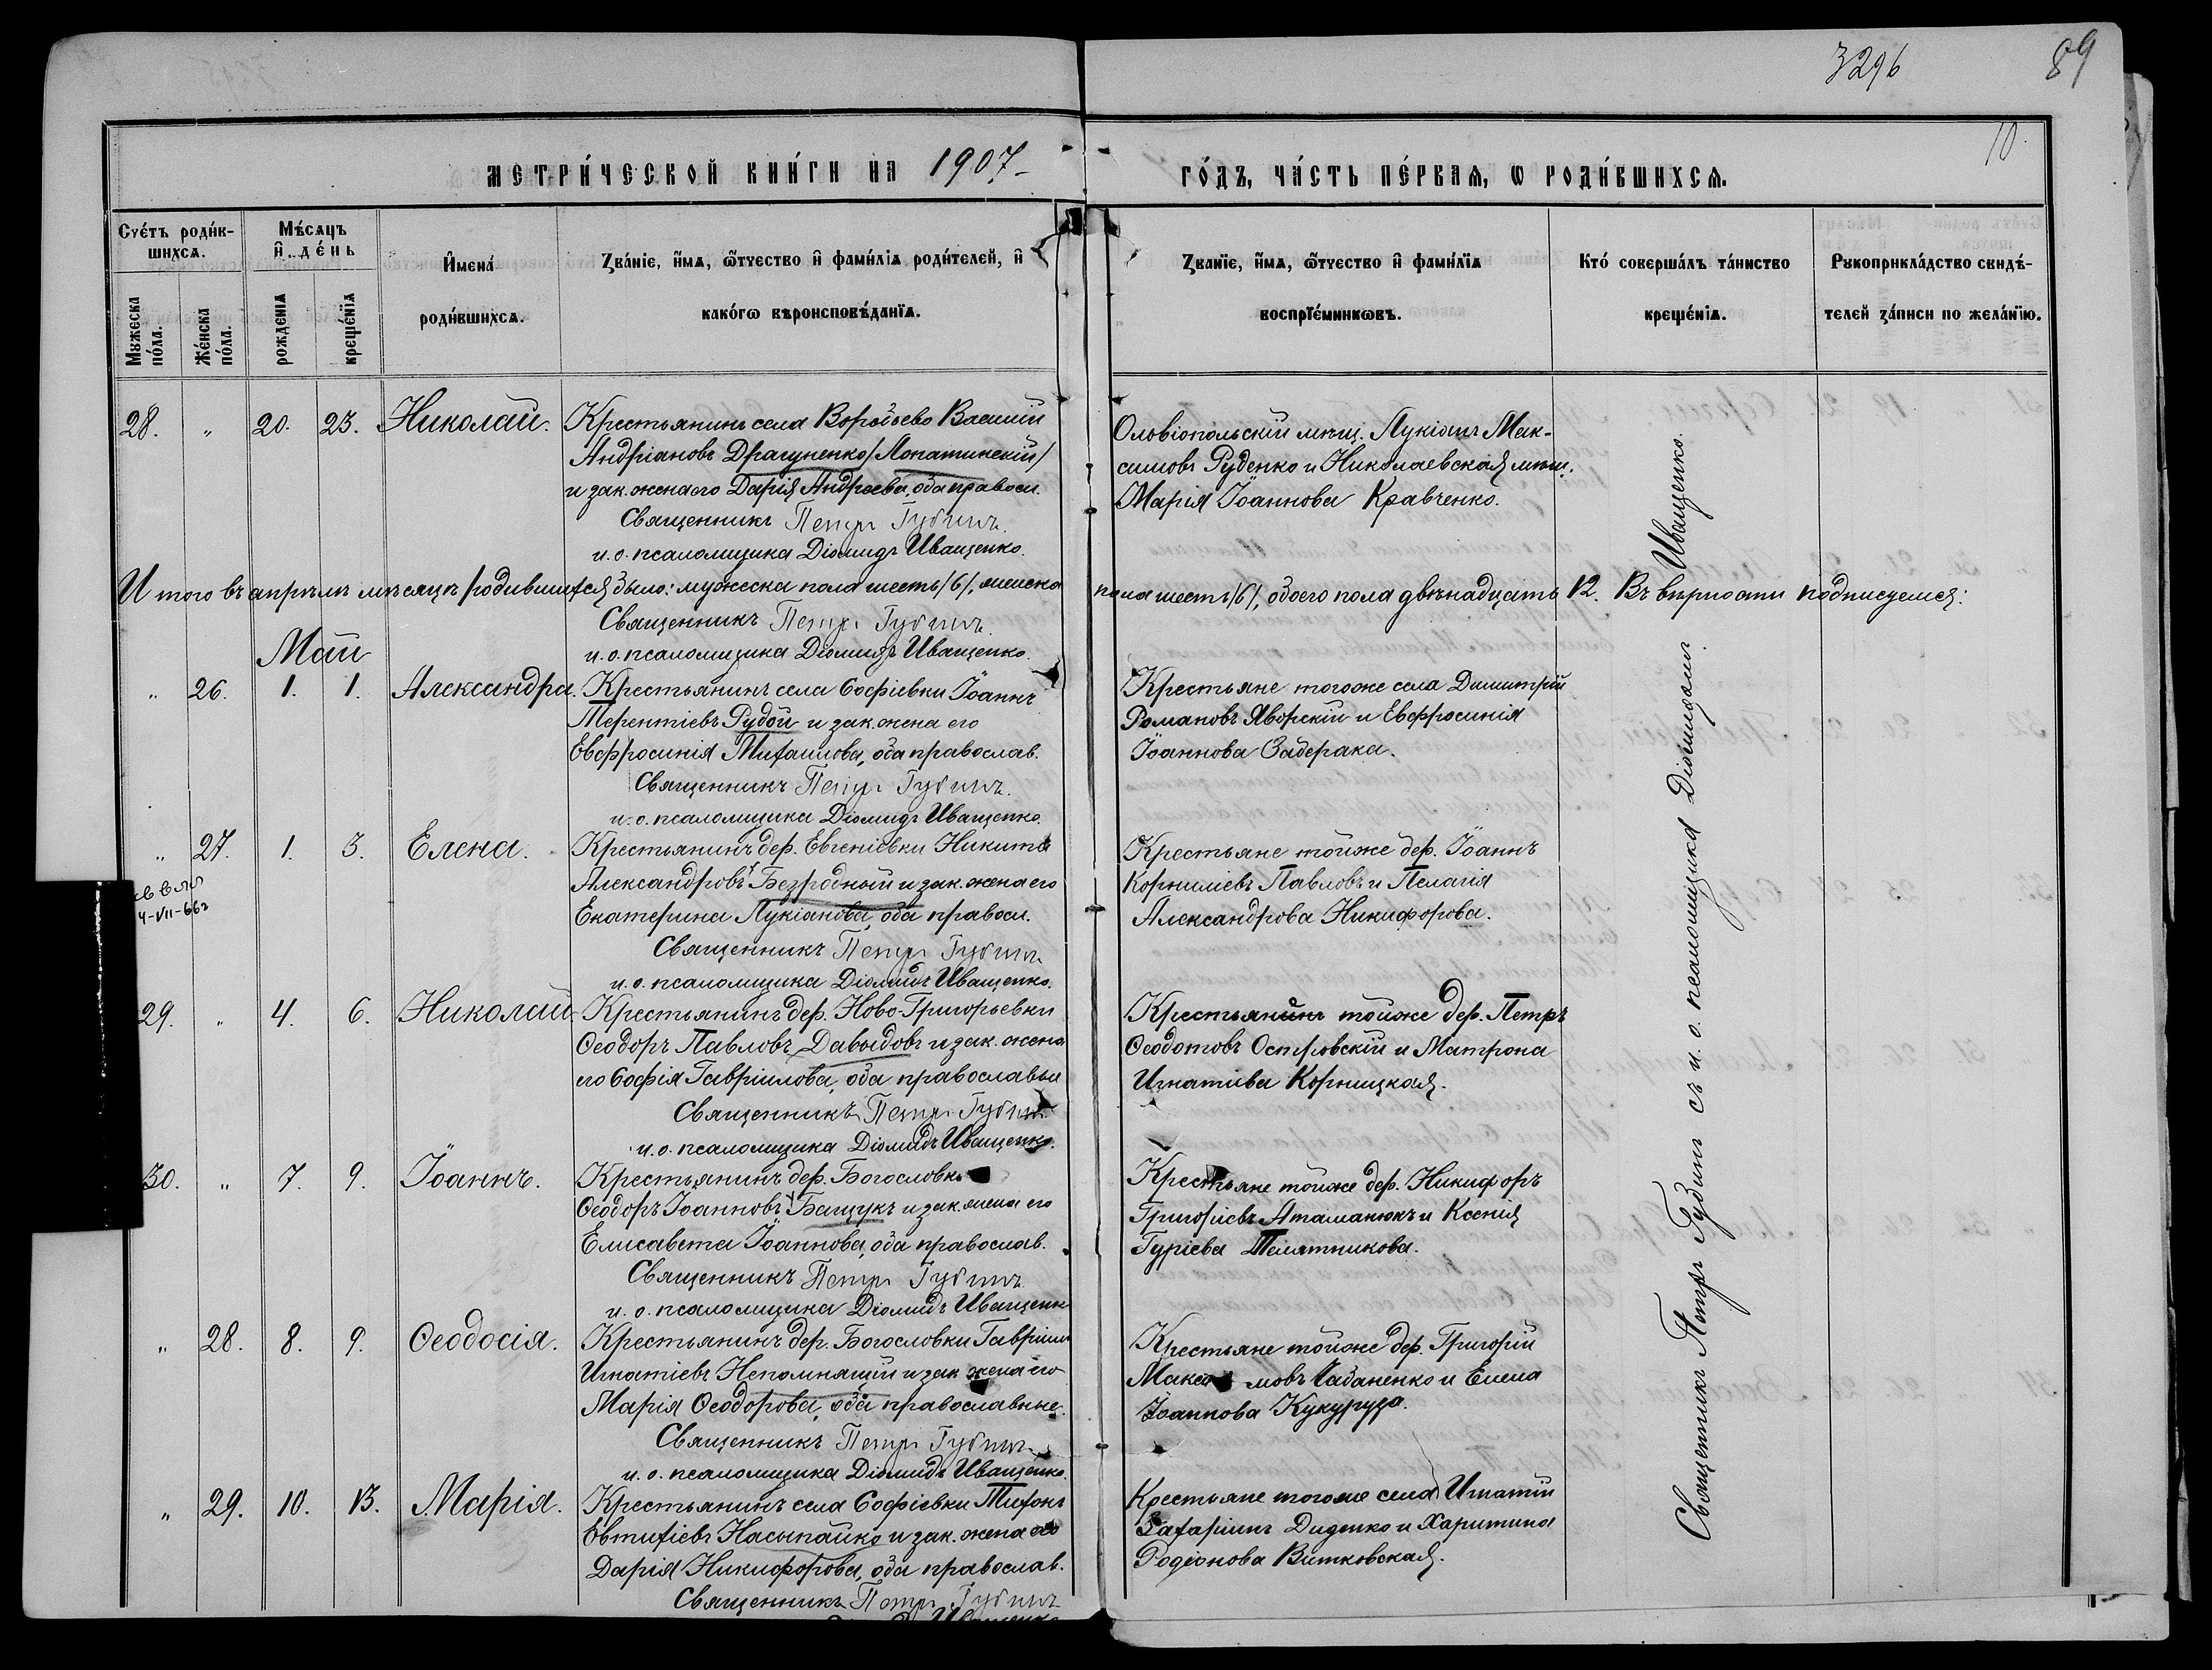 3296
89
10.
МЕТРИ́ЧЕСКОЙ КНИ́ГИ НА 1907 ГО́ДЪ, ЧА́СТЬ ПЕ́РВАѦ, Ѡ РОДИ́ВШИХСѦ.
Счéтъ роди́вшихсѧ.
Мужеска по́ла.
Же́нска по́ла.
Мѣ́сѧцъ и҆ де́нь
рожденїѧ
креще́нїѧ
И҆мена́ роди́вшихсѧ.
Зва́нїе, и҆́мѧ, ѻ҆́тчество и҆ фами́лїѧ роди́телей, и҆
како́гѡ вѣроисповѣ́данїѧ.
Зва́нїе, и҆́мѧ, ѻ҆́тчество и҆ фами́лїѧ
воспрїе́мникѡвъ.
Кто́ соверша́лъ та́инство
креще́нїѧ.
Рукоприкла́дство свидѣ́-
телей за́писи по жела́нїю.
28. " 20. 23. Николай. Крестьянинъ села Воробьево Василій
Андріановъ Драгуненко /Лопатинскій/
и зак. жена его Дарія Андреева, оба правосл.
Священникъ Петръ Губинъ.
и. о. псаломщика Діомидъ Иващенко.
Оловіопольскій мѣщ. Лукіанъ Мак-
симовъ Руденко и Николаевская мѣщ.
Марія Іоаннова Кравченко.
Итого въ апрѣлѣ мѣсяцѣ родившихся было: мужеска пола шесть /6/, женска пола шесть /6/, обоего пола двѣнадцать 12. Въ вѣрности подписуемся:
Священникъ Петръ Губинъ.
и. о. псаломщика Діомидъ Иващенко.
Май
" 26. 1. 1. Александра. Крестьянинъ села Софіевки Іоаннъ
Терентіевъ Рудой и зак. жена его
Евфросинія Михаилова, оба православ.
Священникъ Петръ Губинъ.
и. о. псаломщика Діомидъ Иващенко.
Крестьяне того же села Димитрій
Романовъ Яворскій и Евфросинія
Іоаннова Задерака.
" 27. 1. 3. Елена. Крестьянинъ дер. Евгеніевки Никита
Александровъ Безродный и зак. жена его
Екатерина Лукіанова, оба правосл.
Священникъ Петръ Губинъ
и. о. псаломщика Діомидъ Иващенко.
Крестьяне тойже дер. Іоаннъ
Корниліевъ Павловъ и Пелагія
Александрова Никифорова.
4-VII-66г
29. " 4. 6. Николай Крестьянинъ дер. Ново-Григорьевки
Ѳеодоръ Павловъ Давыдовъ и зак. жена
его Софія Гавріилова, оба православны
Священникъ Петръ Губинъ
и. о. псаломщика Діомидъ Иващенко.
Крестьянинъ тойже дер. Петръ
Ѳеодотовъ Островскій и Матрона
Игнатіева Корницкая.
30. " 7. 9. Іоаннъ. Крестьянинъ дер. Богословки
Ѳеодоръ Іоанновъ Бащукъ и зак. жена его
Елисавета Іоаннова, оба православ.
Священникъ Петръ Губинъ
и. о. псаломщика Діомидъ Иващенк
Крестьяне тойже дер. Никифоръ
Григоріевъ Атаманюкъ и Ксенія
Гуріева Телятникова.
" 28. 8. 9. Ѳеодосія. Крестьянинъ дер. Богословки Гавріилъ
Игнатіевъ Непомнящій и зак жена его
Марія Ѳеодорова, оба православные.
Священникъ Петръ Губинъ
и. о. псаломщика Діомидъ Иващенко.
Крестьяне тойже дер. Григорій
Макси мовъ Чабаненко и Елена
Іоаннова Кукуруза.
" 29. 10. 13. Марія. Крестьянинъ села Софіевки Тихонъ
Евтихіевъ Насыпайко и зак. жена его
Дарія Никифорова, оба православ.
Священникъ Петръ Губинъ
Крестьяне того же села Игнатій
Захаріинъ Диденко и Харитина
Родіонова Витковская.
Священникъ Петръ Губинъ съ и. о. псаломщика Діомидомъ Иващенко.